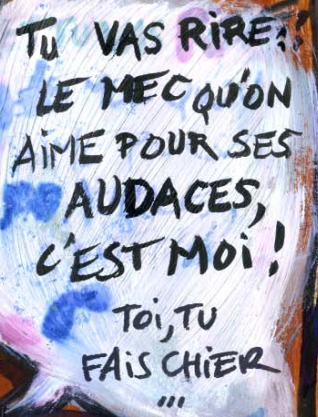 TU VAS RIRE:!
LE MEC QU'ON
AIME POUR SES
AUDACES,
C'EST MOI!
TOI, TU
FAIS CHIER
...